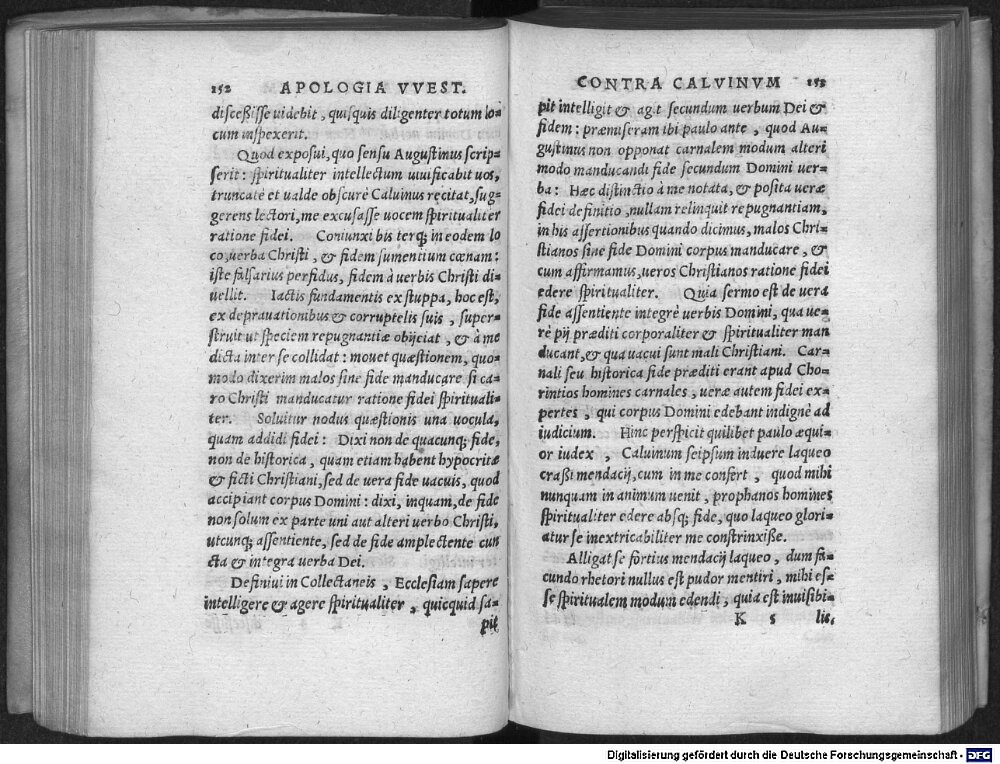 152 APOLOGIA VVEST.
disceßisse uidebit, quisquis diligenter totum lo=
cum inspexerit.
Quod exposui, quo sensu Augustinus scrip=
serit: spiritualiter intellectum uiuificabit uos,
truncatè et ualde obscurè Caluinus recitat, sug=
gerens lectori, me excusasse uocem spiritualiter
ratione fidei. Coniunxi bis terq; in eodem lo
co, uerba Christi, & fidem sumentium cœnam:
iste falsarius perfidus, fidem à uerbis Christi di=
uellit. Iactis fundamentis ex stuppa, hoc est,
ex deprauationibus & corruptelis suis, super=
struit ut speciem repugnantiæ obijciat, & à me
dicta inter se collidat: mouet quæstionem, quo=
modo dixerim malos sine fide manducare si ca=
ro Christi manducatur ratione fidei spirituali=
ter. Soluitur nodus quæstionis una uocula,
quam addidi fidei: Dixi non de quacunq; fide,
non de historica, quam etiam habent hypocritæ
& ficti Christiani, sed de uera fide uacuis, quod
accipiant corpus Domini: dixi, inquam, de fide
non solum ex parte uni aut alteri uerbo Christi,
utcunq; assentiente, sed de fide amplectente cun
cta & integra uerba Dei.
Definiui in Collectaneis, Ecclesiam sapere
intelligere & agere spiritualiter, quicquid sa=
pit
CONTRA CALVINVM 153
pit intelligit & agit secundum uerbum Dei &
fidem: præmiseram ibi paulo ante, quod Au=
gustinus non opponat carnalem modum alteri
modo manducandi fide secundum Domini uer=
ba: Hæc distinctio à me notata, & posita ueræ
fidei definitio, nullam relinquit repugnantiam,
in his assertionibus quando dicimus, malos Chri=
stianos sine fide Domini corpus manducare, &
cum affirmamus, ueros Christianos ratione fidei
edere spiritualiter. Quia sermo est de uera
fide assentiente integrè uerbis Domini, qua ue=
rè pij præditi corporaliter & spiritualiter man
ducant, & qua uacui sunt mali Christiani. Car=
nali seu historica fide præditi erant apud Cho=
rintios homines carnales, ueræ autem fidei ex=
pertes, qui corpus Domini edebant indignè ad
iudicium. Hinc perspicit quilibet paulo æqui=
or iudex, Caluinum seipsum induere laqueo
craßi mendacij, cum in me confert, quod mihi
nunquam in animum uenit, prophanos homines
spiritualiter edere absq; fide, quo laqueo glori=
atur se inextricabiliter me constrinxisse.
Alligat se fortius mendacij laqueo, dum fa=
cundo rhetori nullus est pudor mentiri, mihi es=
se spiritualem modum edendi, quia est inuisibi=
K 5 lis,
Digitalisierung gefördert durch die Deutsche Forschungsgemeinschaft - DFG